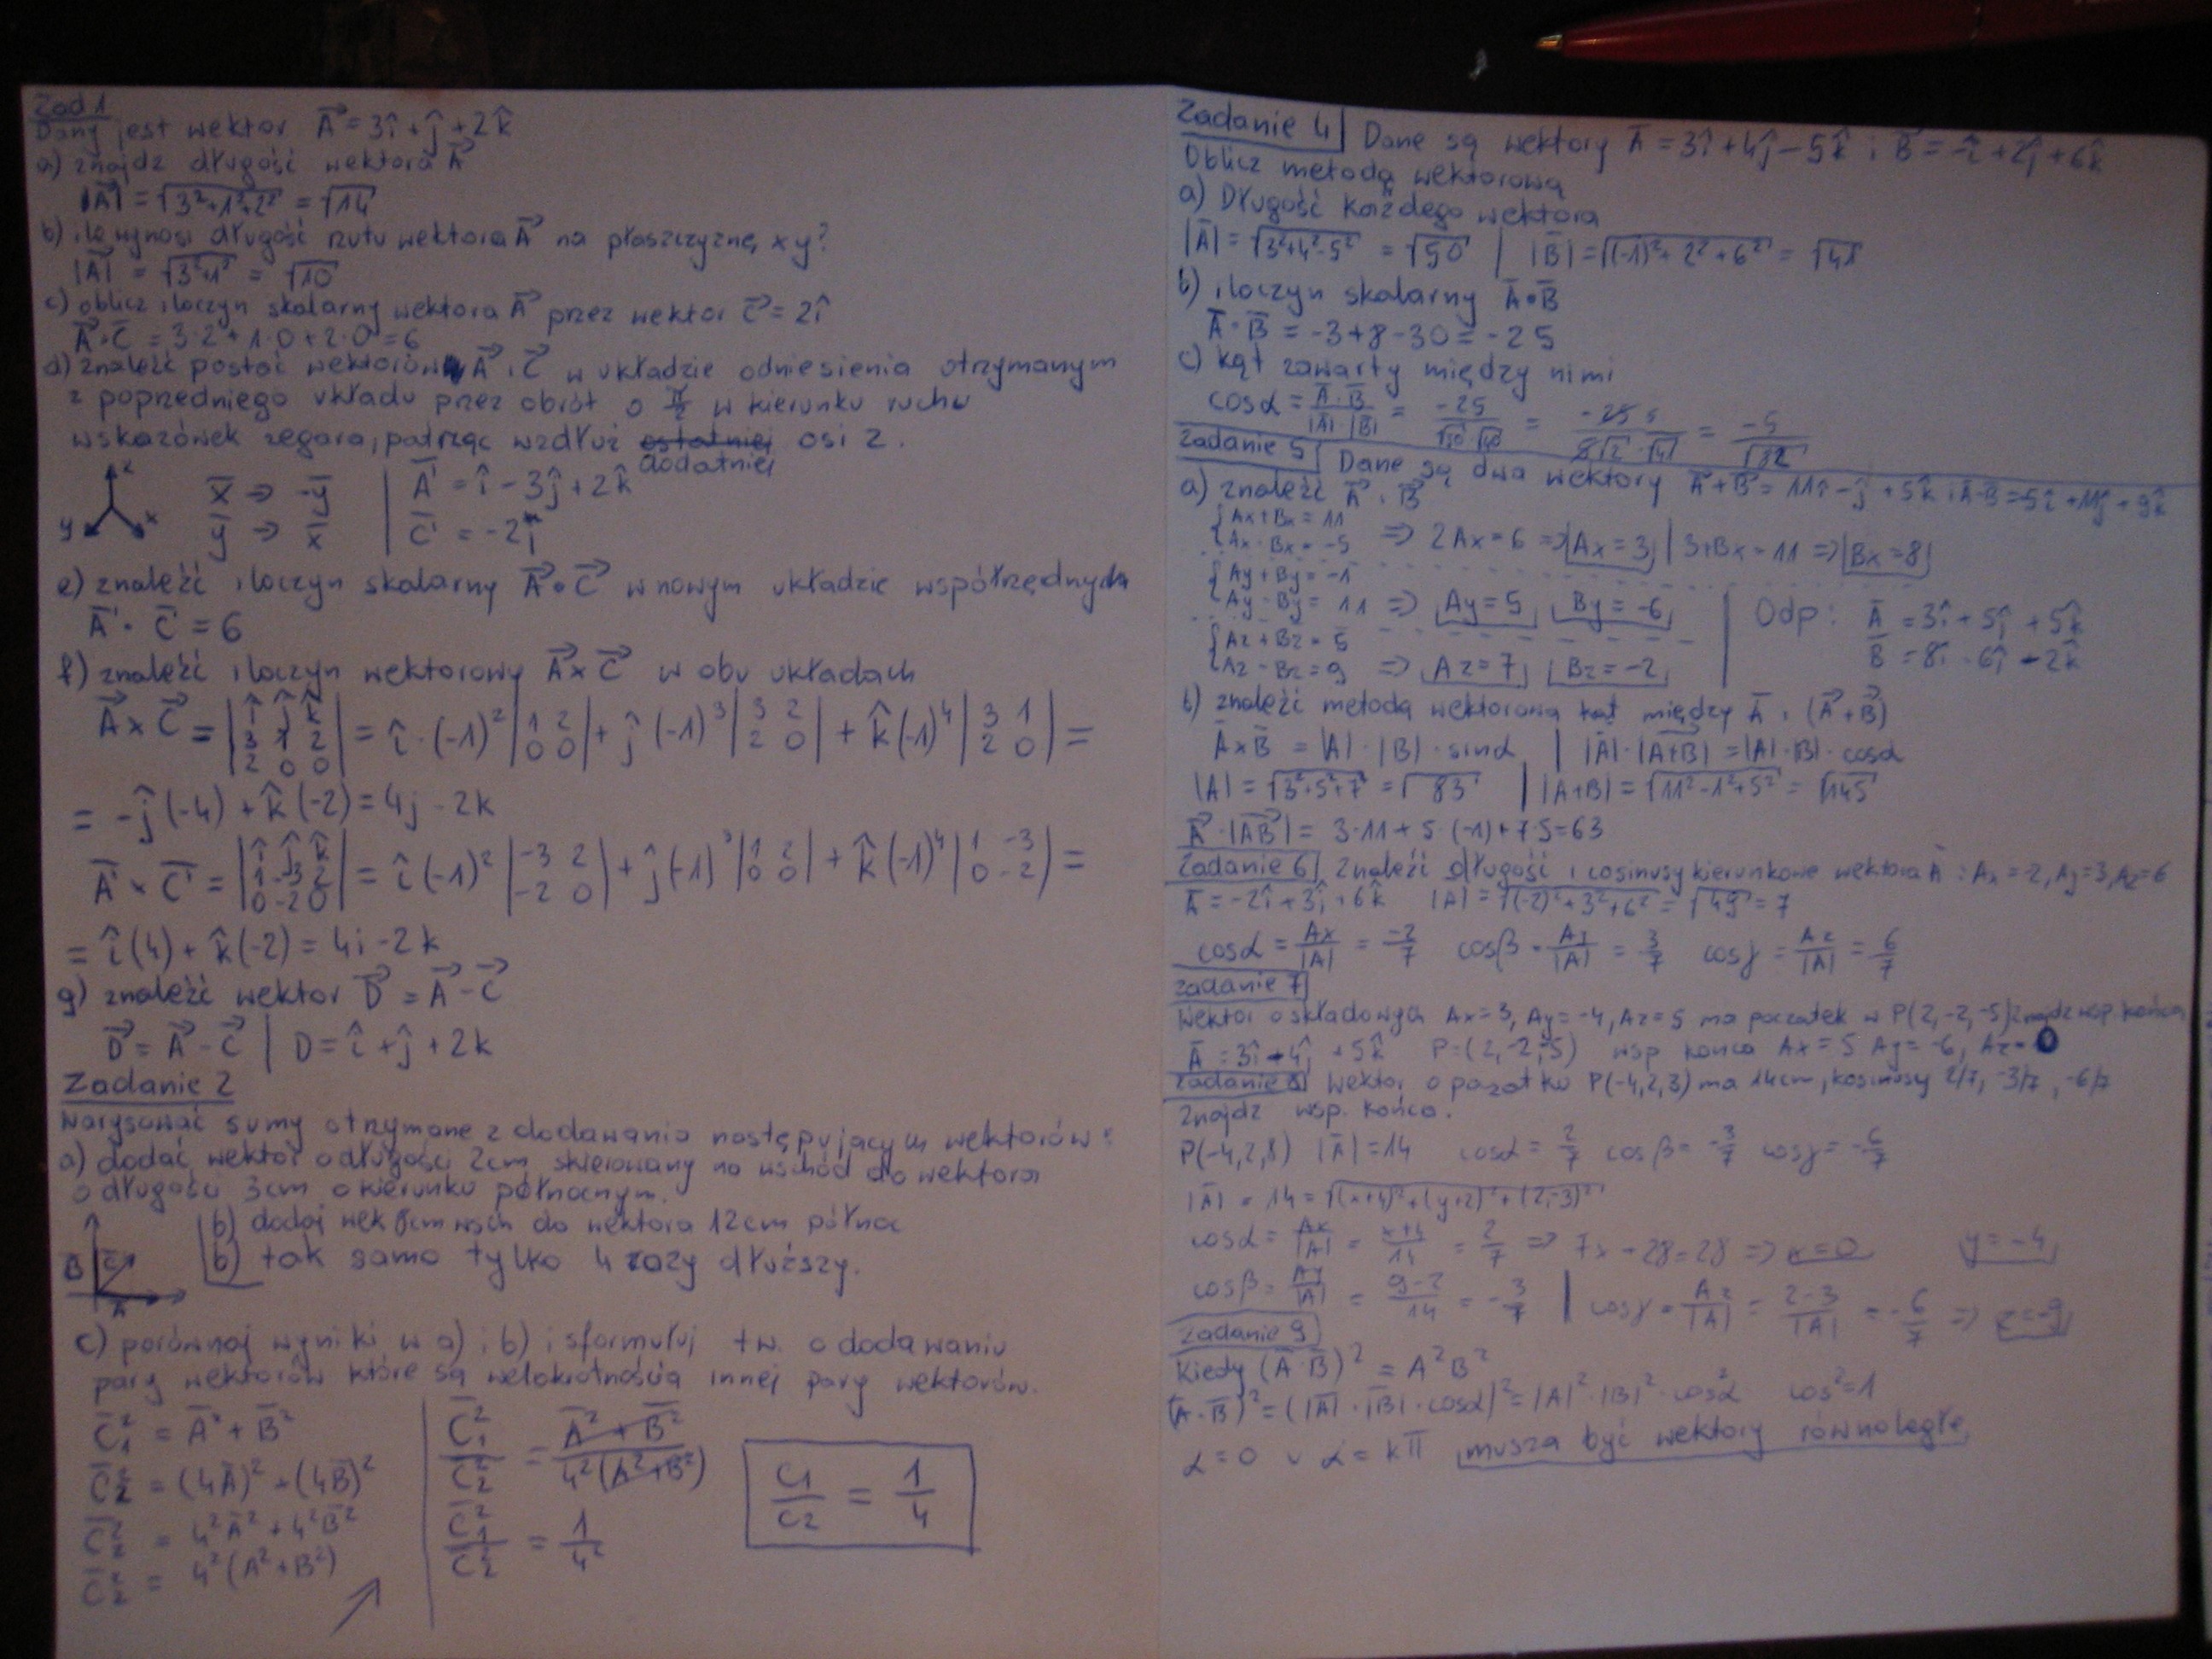 Zad 1
Dany jest wektor A = 3î + ĵ + 2k̂
a) znajdz długość wektora A
|A| = √3²+1²+2² = √14
b) ile wynosi długość rzutu wektora A na płaszczyznę xy?
|A| = √3²+1² = √10
c) oblicz iloczyn skalarny wektora A przez wektor C = 2î
A·C = 3·2 + 1·0 + 2·0 = 6
d) znaleźć postać wektorów A i C w układzie odniesienia otrzymanym
z poprzedniego układu przez obrót o π/2 w kierunku ruchu
wskazówek zegara, patrząc wzdłuż osi z.
dodatniej
z y x
x ⇒ -y | A' = î - 3ĵ + 2k̂
y ⇒ x | C' = -2j
e) znaleźć iloczyn skalarny A∘C w nowym układzie współrzędnych
A'·C' = 6
f) znaleźć iloczyn wektorowy A×C w obu układach
A×C = |î ĵ k̂; 3 1 2; 2 0 0| = î·(-1)²|1 2; 0 0| + ĵ(-1)³|3 2; 2 0| + k̂(-1)⁴|3 1; 2 0| =
= -ĵ(-4) + k̂(-2) = 4j - 2k
A'×C' = |î ĵ k̂; 1 -3 2; 0 -2 0| = î(-1)²|-3 2; -2 0| + ĵ(-1)³|1 2; 0 0| + k̂(-1)⁴|1 -3; 0 -2| =
= î(4) + k̂(-2) = 4i - 2k
g) znaleźć wektor D = A - C
D = A - C | D = î + ĵ + 2k
Zadanie 2
Narysować sumy otrzymane z dodawania następujących wektorów:
a) dodać wektor o długości 2cm skierowany na wschód do wektora
o długości 3cm o kierunku północnym.
b) dodaj wek 8cm wsch do wektora 12cm północ
b) tak samo tylko 4 razy dłuższy.
B C A
c) porównaj wyniki w a) i b) i sformułuj tw. o dodawaniu
pary wektorów które są wielokrotnością innej pary wektorów.
C₁² = A² + B²
C₂² = (4A)² + (4B)²
C₂² = 4²A² + 4²B²
C₂² = 4²(A²+B²)
C₁²/C₂² = A²+B²/4²(A²+B²)
C₁²/C₂² = 1/4²
C1/C2 = 1/4
Zadanie 4 Dane są wektory A = 3î + 4ĵ - 5k̂ i B = -î + 2ĵ + 6k̂
Oblicz metodą wektorową
a) Długość każdego wektora
|A| = √3²+4²-5² = √50 | |B| = √(-1)²+2²+6² = √41
b) iloczyn skalarny A∘B
A·B = -3+8-30 = -25
c) kąt zawarty między nimi
cosα = A·B/|A|·|B| =
Zadanie 5 Dane są dwa wektory A+B = 11î - ĵ + 5k̂ i A-B = -5î + 11ĵ + 9k̂
a) znaleźć A i B
Ax+Bx = 11
Ax-Bx = -5 ⇒ 2Ax = 6 ⇒ Ax = 3 | 3+Bx = 11 ⇒ Bx = 8
Ay+By = -1
Ay-By = 11 ⇒ Ay = 5 By = -6
Az+Bz = 5
Az-Bz = 9 ⇒ Az = 7 Bz = -2
Odp: A = 3î + 5ĵ + 5k̂
B = 8î - 6ĵ - 2k̂
b) znaleźć metodą wektorową kąt między A i (A+B)
A×B = |A|·|B|·sinα | |A|·|A+B| = |A|·|B|·cosα
|A| = √3²+5²+7² = √83 | |A+B| = √11²-1²+5² = √145
A·|AB| = 3·11 + 5·(-1) + 7·5 = 63
Zadanie 6 Znaleźć długość i cosinusy kierunkowe wektora A : Ax = -2, Ay = 3, Az = 6
A = -2î + 3ĵ + 6k̂ |A| = √(-2)²+3²+6² = √49 = 7
cosα = Ax/|A| = -2/7 cosβ = Ay/|A| = 3/7 cosγ = Az/|A| = 6/7
Zadanie 7
Wektor o składowych Ax=3, Ay=-4, Az=5 ma początek w P(2,-2,-5) znajdz wsp. końca
A = 3î - 4ĵ + 5k̂ P=(2,-2,-5) wsp końca Ax = 5 Ay = -6, Az = 0
Zadanie 8 Wektor o pozątku P(-4,2,3) ma 14cm, kosinusy 2/7, -3/7, -6/7
Znajdz wsp. końca.
P(-4,2,8) |A| = 14 cosα = 2/7 cosβ = -3/7 cosγ = -6/7
|A| = 14 = √(x+4)²+(y+2)²+(z-3)²
cosα = Ax/|A| = x+4/14 = 2/7 ⇒ 7x + 28 = 28 ⇒ x = 0 y = -4
cosβ = Ay/|A| = y-2/14 = -3/7 | cosγ = Az/|A| = z-3/|A| = -6/7 ⇒ z = -9
Zadanie 9
Kiedy (A·B)² = A²B²
(A·B)² = (|A|·|B|·cosα)² = |A|²·|B|²·cos²α cos² = 1
α = 0 ∨ α = kπ muszą być wektory równoległe